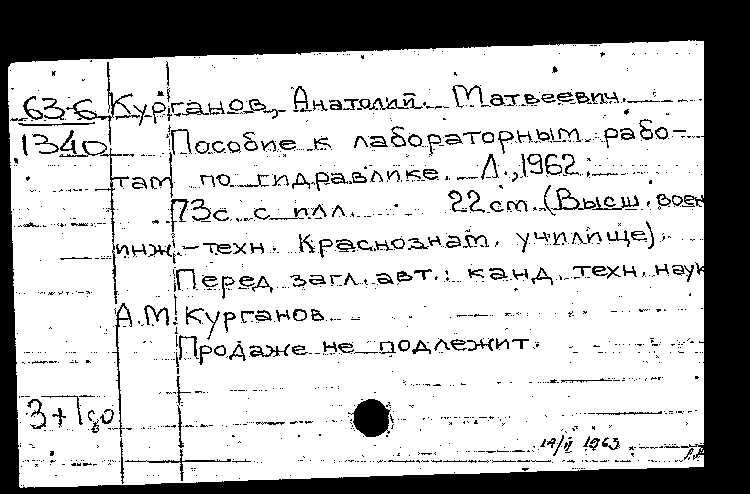 63-6 Курганов, Анатолий Матвеевич.
1340 Пособие к лабораторным рабо-
там по гидравлике. Л., 1962.
73с. с илл. 22см. (Высш. воен
инж.-техн. Краснознам. училище).
Перед загл. авт.: канд. техн. наук
А.М. Курганов
Продаже не подлежит.
3+1
14/II 1963